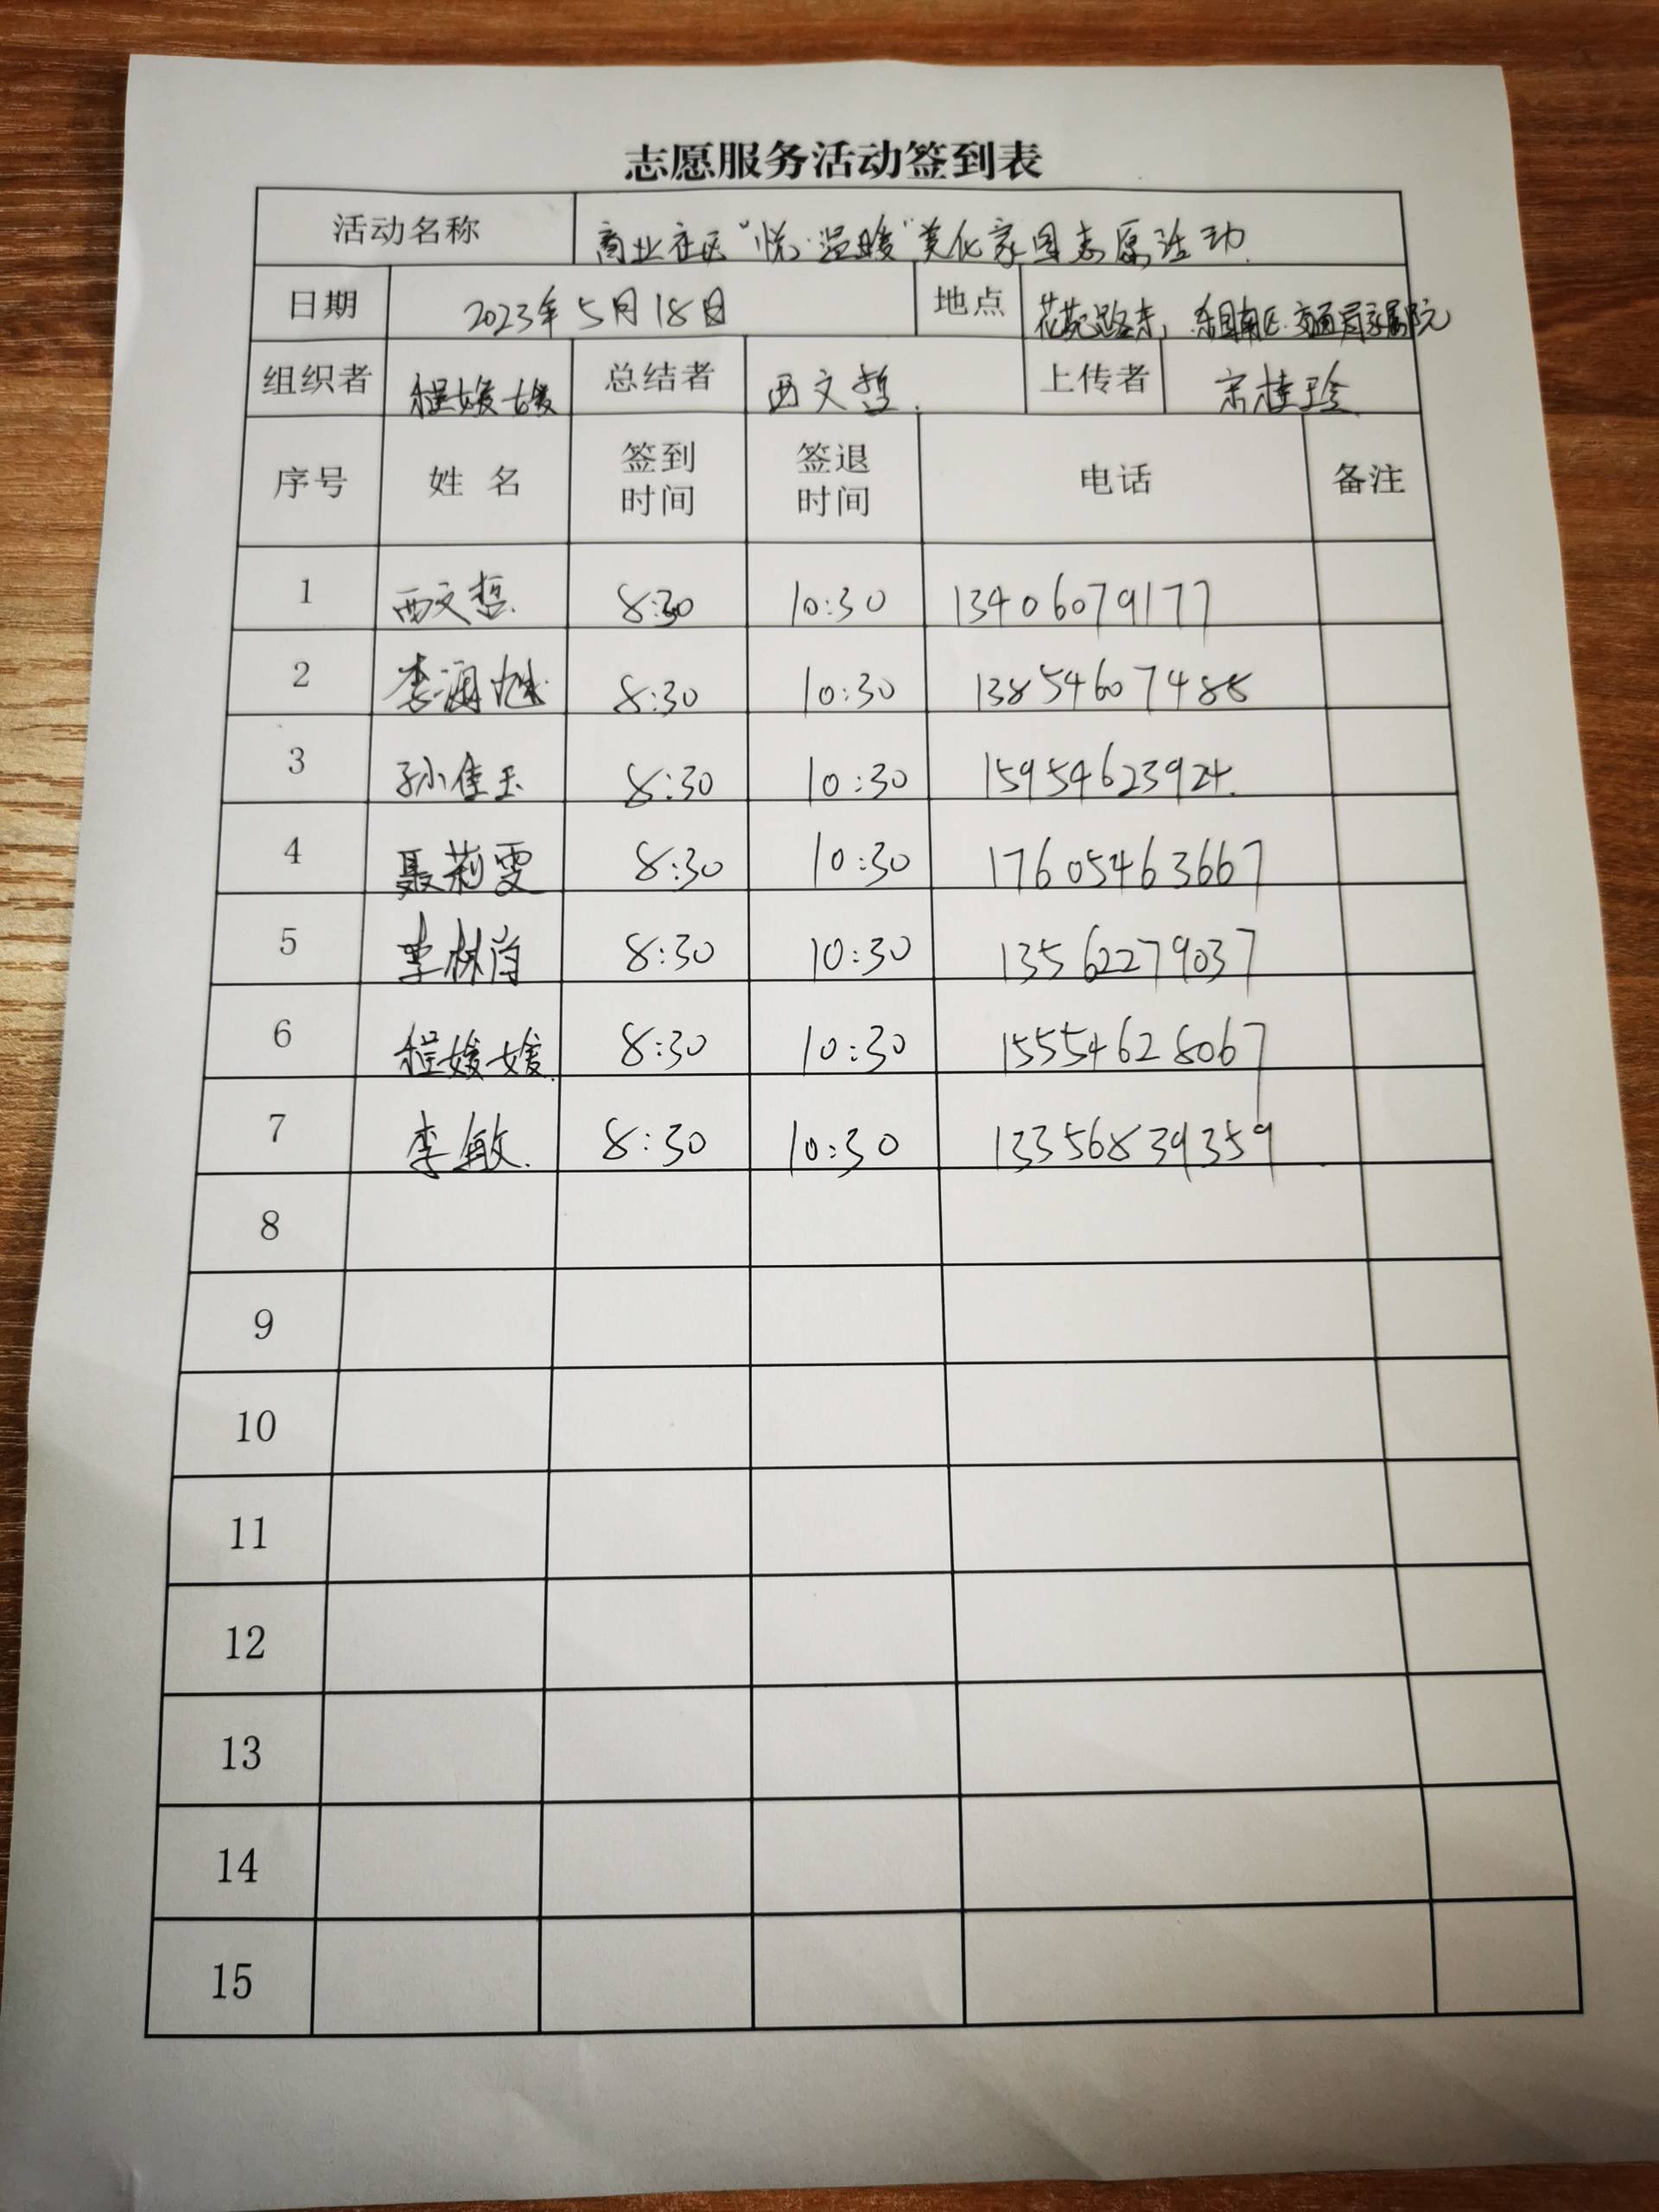 志愿服务活动签到表
活动名称 商业社区“悦·温暖”美化家园志愿活动
日期 2023年5月18日 地点 花苑路东, 东国南区.交通局家属院
组织者 程媛媛 总结者 西文哲 上传者 宗桂珍
序号 姓名 签到时间 签退时间 电话 备注
1 西文哲 8:30 10:30 13406079177
2 李 8:30 10:30 13854607488
3 孙佳玉 8:30 10:30 15954623924
4 聂莉雯 8:30 10:30 17605463667
5 李林 8:30 10:30 13562279037
6 程媛媛 8:30 10:30 15554628067
7 李敏 8:30 10:30 13356839359
8
9
10
11
12
13
14
15